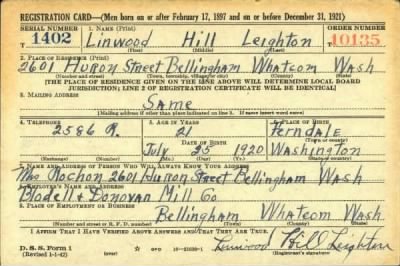 REGISTRATION CARD—(Men born on or after February 17, 1897 and on or before December 31, 1921)
SERIAL NUMBER 1. NAME (Print) ORDER NUMBER
1402 Linwood Hill Leighton 10135
(First) (Middle) (Last)
2. PLACE OF RESIDENCE (Print)
2601 Huron Street Bellingham Whatcom Wash
(Number and street) (Town, township, village, or city) (County) (State)
[THE PLACE OF RESIDENCE GIVEN ON THE LINE ABOVE WILL DETERMINE LOCAL BOARD
JURISDICTION; LINE 2 OF REGISTRATION CERTIFICATE WILL BE IDENTICAL]
3. MAILING ADDRESS
Same
[Mailing address if other than place indicated on line 2. If same insert word same]
4. TELEPHONE 5. AGE IN YEARS 6. PLACE OF BIRTH
2586 R. 21 Ferndale
DATE OF BIRTH (Town or county)
July 25 1920 Washington
(Exchange) (Number) (Mo.) (Day) (Yr.) (State or country)
7. NAME AND ADDRESS OF PERSON WHO WILL ALWAYS KNOW YOUR ADDRESS
Mrs Rochon 2601 Huron Street Bellingham Wash
8. EMPLOYER'S NAME AND ADDRESS
Blodell & Donovan Mill Co
9. PLACE OF EMPLOYMENT OR BUSINESS
Bellingham Whatcom Wash
(Number and street or R. F. D. number) (Town) (County) (State)
I AFFIRM THAT I HAVE VERIFIED ABOVE ANSWERS AND THAT THEY ARE TRUE.
D. S. S. Form 1 Linwood Hill Leighton
(Revised 1-1-42) (Registrant's signature)